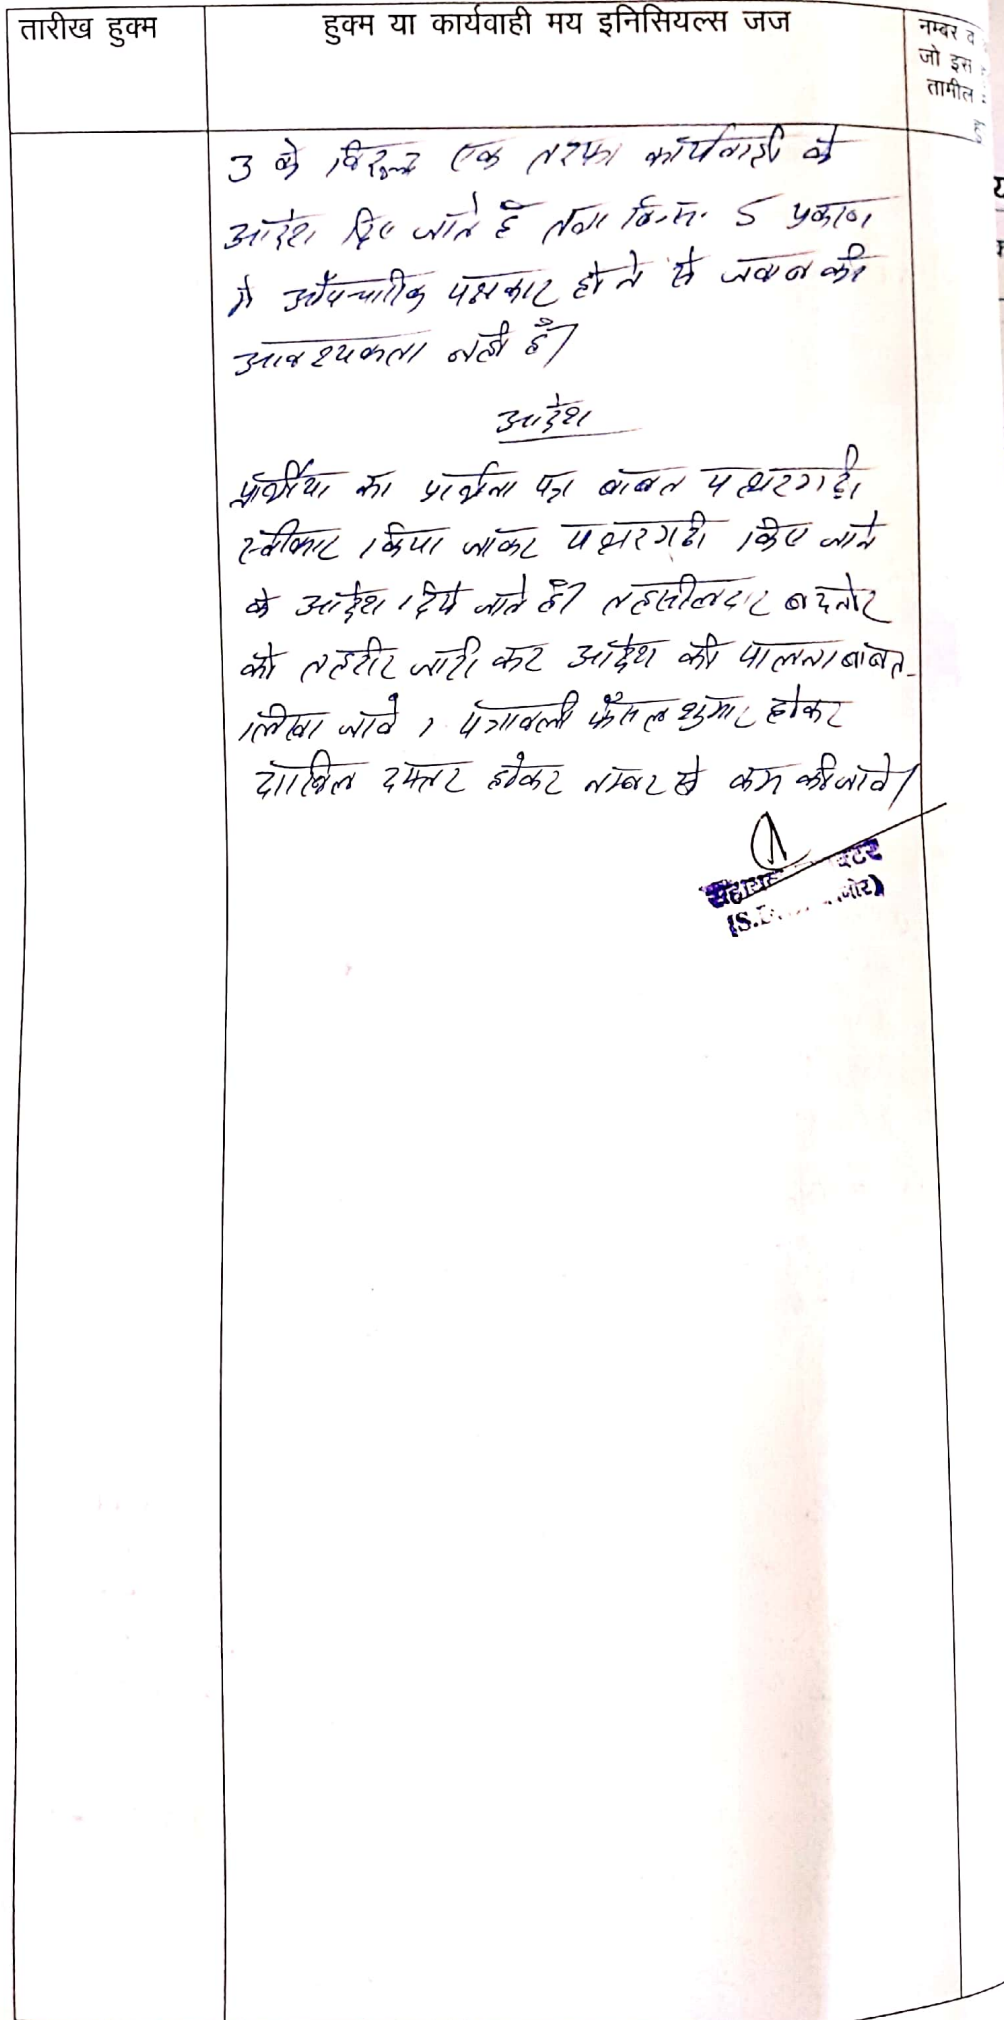 तारीख हुक्म
हुक्म या कार्यवाही मय इनिसियल्स जज
नम्बर व
जो इस
तामील
3 के विरूद्ध एक तरफा कार्यवाही के
आदेश दिए जाते हैं तथा वि.सं. 5 प्रकरण
में औपचारिक पक्षकार होने से जवाब की
आवश्यकता नही है।
आदेश
प्रार्थीया का प्रार्थना पत्र बाबत पत्थरगढी
स्वीकार किया जाकर पत्थरगढी किए जाने
के आदेश दिये जाते है। तहसीलदार बदनोर
को तहरीर जारी कर आदेश की पालना बाबत
लिखा जावे। पत्रावली फैसल शुमार होकर
दाखिल दफ्तर होकर नम्बर से कम की जावे।